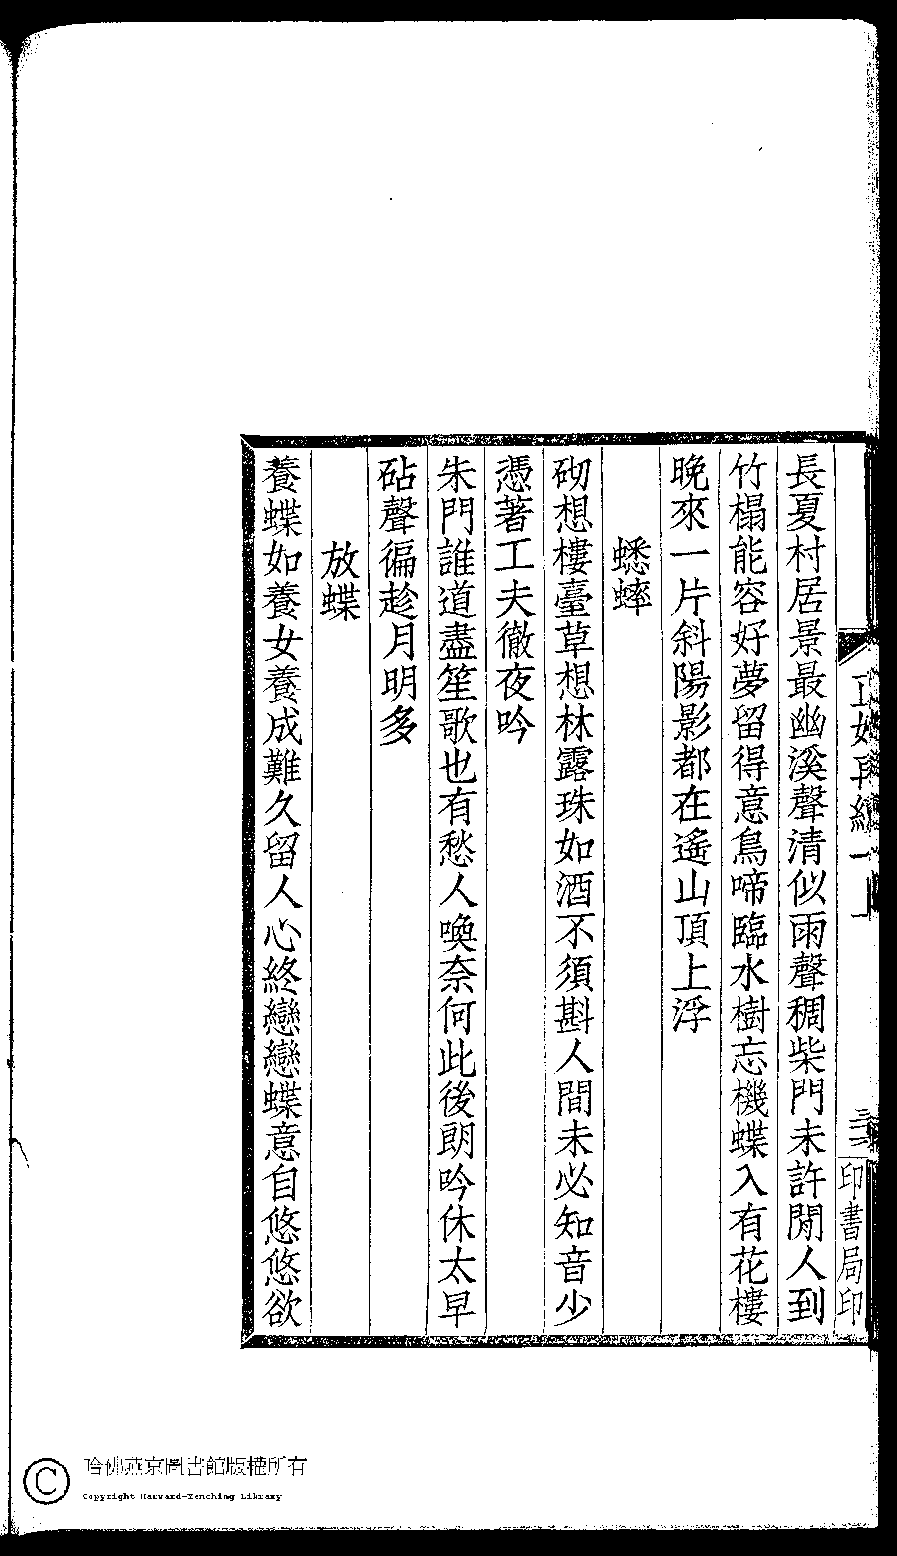 長夏村居景最幽溪聲清似雨聲稠柴門未許閒人到
竹榻能容好夢留得意鳥啼臨水樹忘機蝶入有花樓
晚來一片斜陽影都在遙山頂上浮
蟋蟀
砌想樓臺草想林露珠如酒不須斟人間未必知音少
憑著工夫徹夜吟
朱門誰道盡笙歌也有愁人喚奈何此後朗吟休太早
砧聲徧趁月明多
放蝶
養蝶如養女養成難久留人心終戀戀蝶意自悠悠欲
印書局印
哈佛燕京圖書館版權所有
Copyright Harvard-Yenching Library